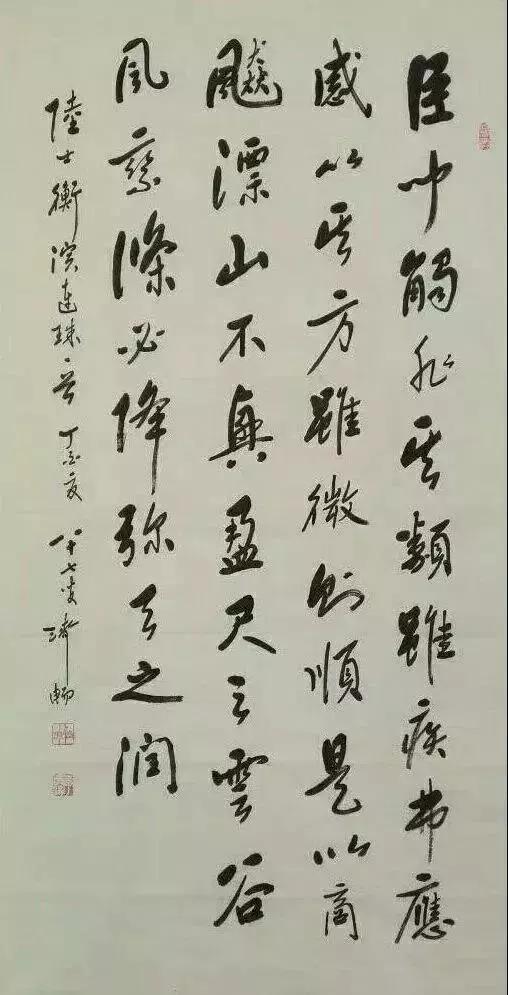 臣聞觸非其類雖疾弗應
感以其方雖微則順是以商
飇漂山不興盈尺之雲谷
風乘條必降弥天之潤
陸士衡演連珠一首 丁亥夏 八十七叟